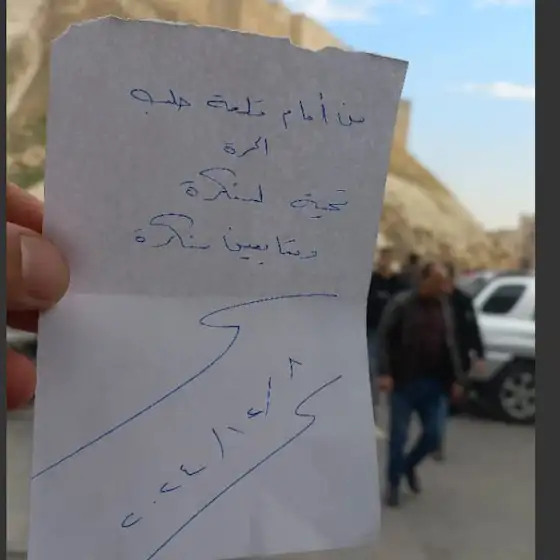 من أمام قلعة حلب
الحرة
تحية لسنكرة
ومتابعين سنكرة